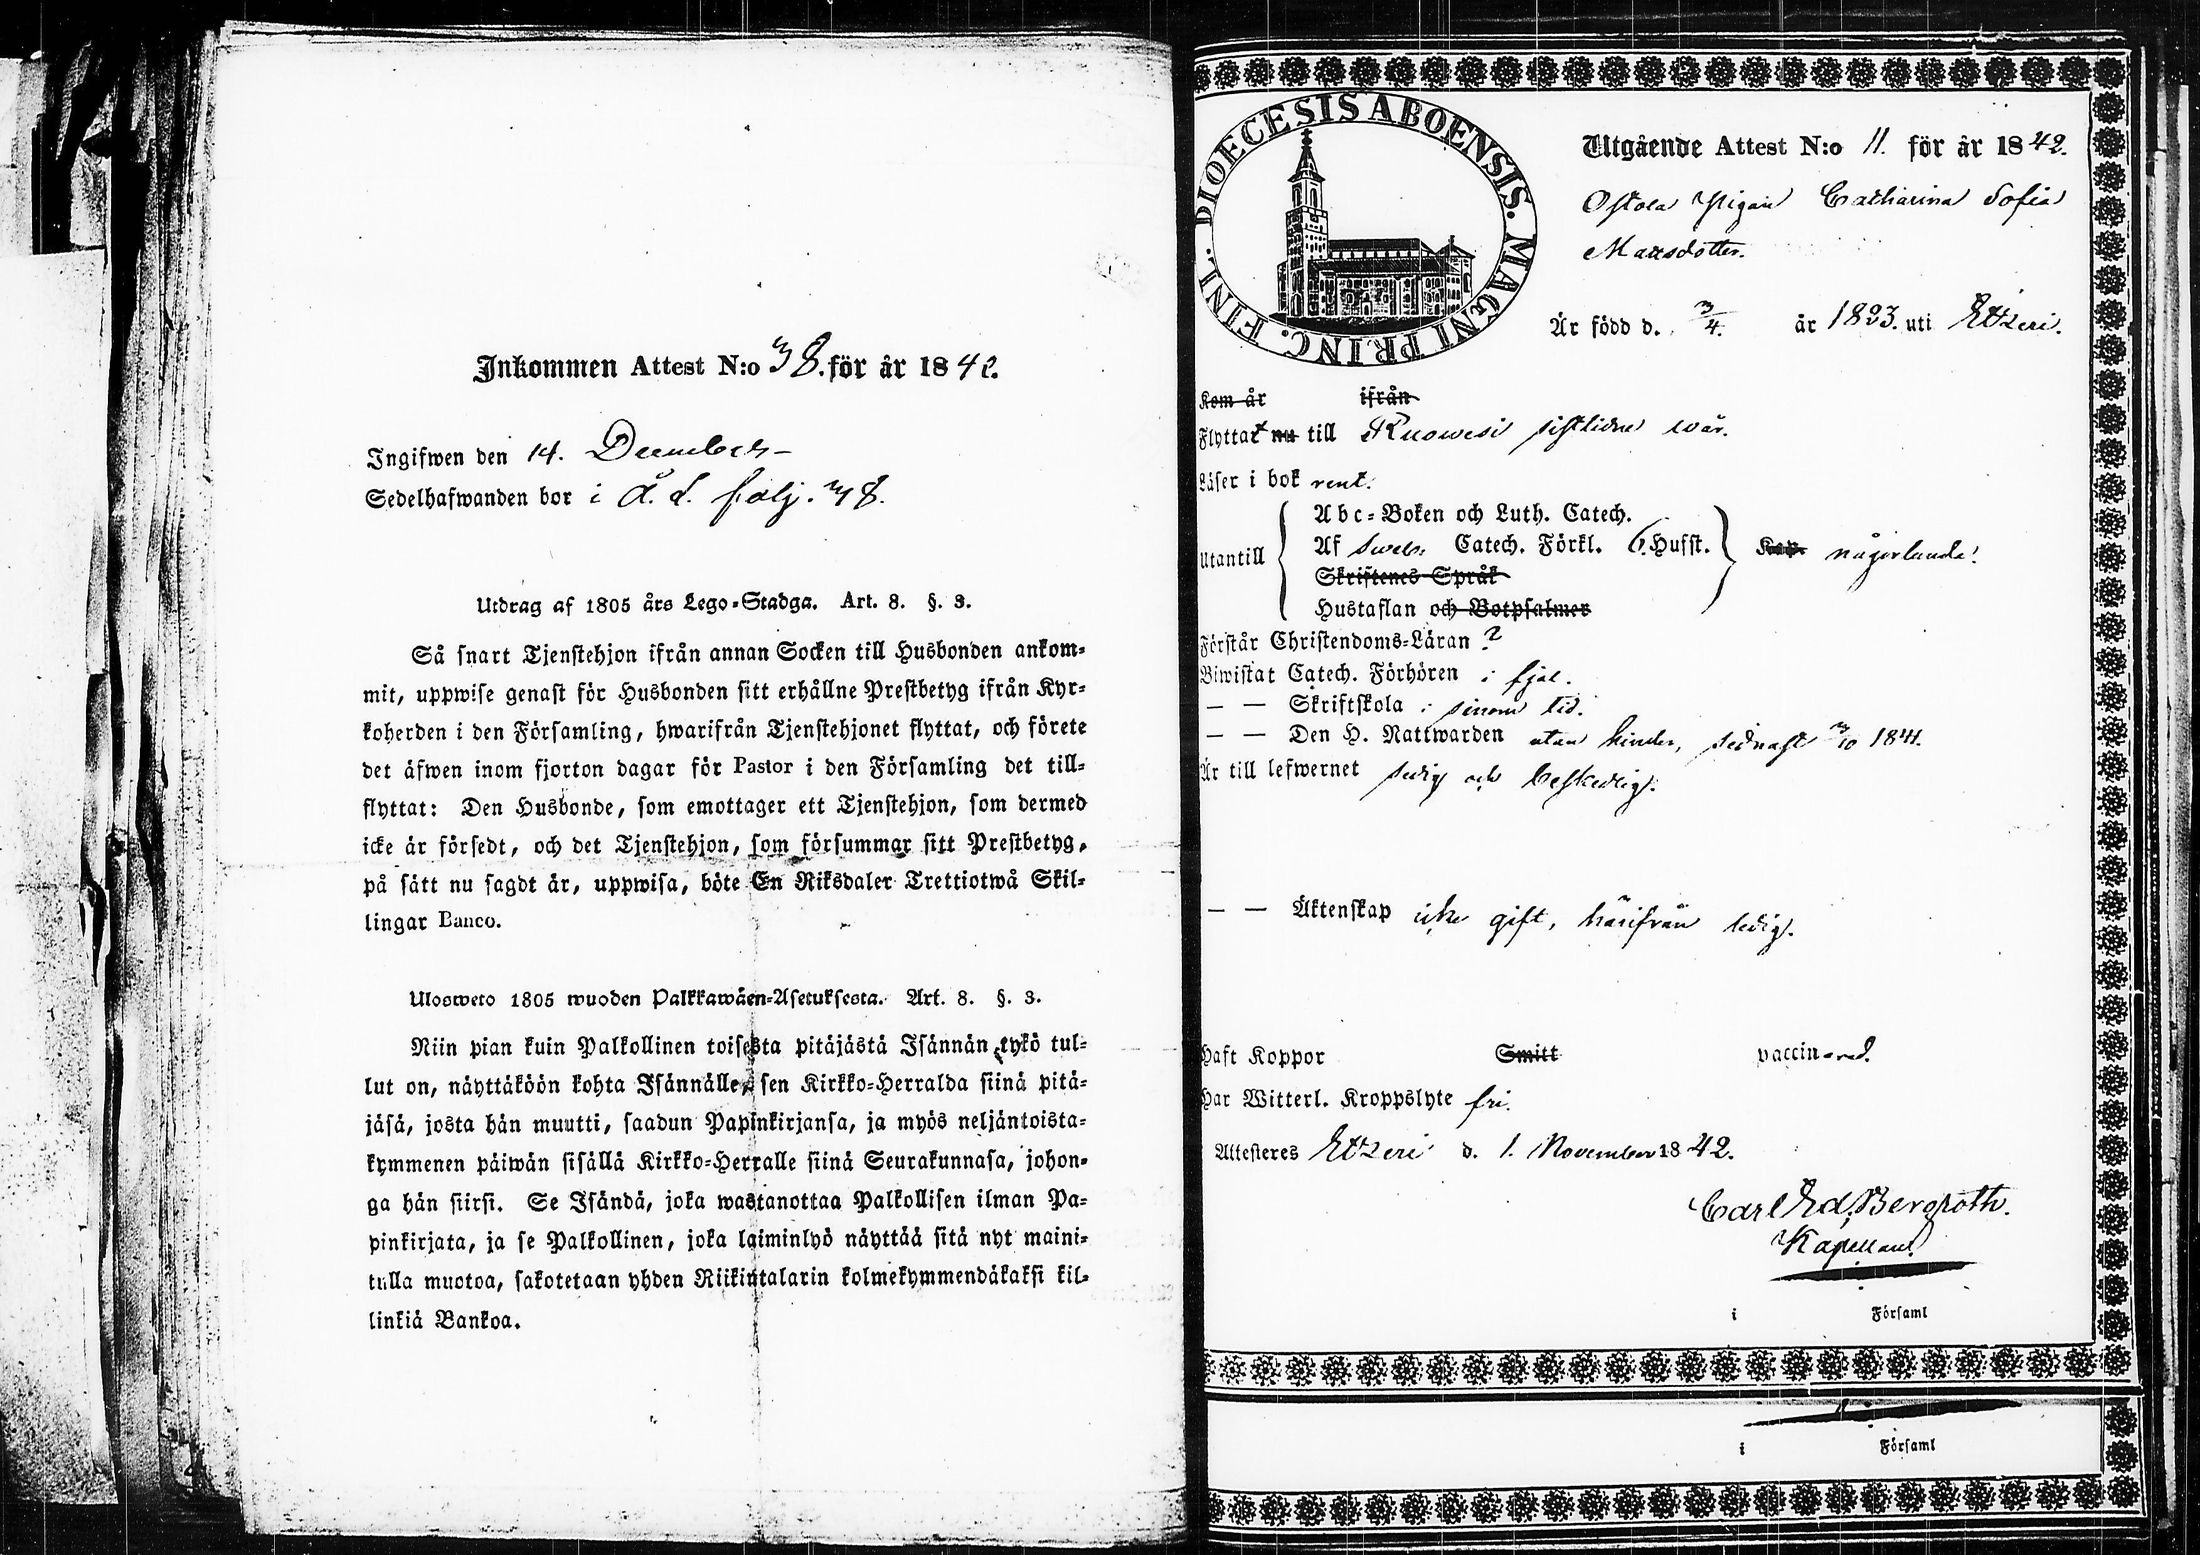 Inkommen Attest N:o 38. för år 1842.
Ingifwen den 14. December
Sedelhafwanden bor i Å. d. följ. 38.
Utdrag af 1805 års Lego-Stadga. Art. 8. §. 3.
Så snart Tjenstehjon ifrån annan Socken till Husbonden ankom-
mit, uppwise genast för Husbonden sitt erhållne Prestbetyg ifrån Kyr-
koherden i den Församling, hwarifrån Tjenstehjonet flyttat, och förete
det äfwen inom fjorton dagar för Pastor i den Församling det till-
flyttat: Den Husbonde, som emottager ett Tjenstehjon, som dermed
icke är försedt, och det Tjenstehjon, som försummar sitt Prestbetyg,
på sätt nu sagdt är, uppwisa, böte En Riksdaler Trettiotwå Skil-
lingar Banco.
Ulosweto 1805 wuoden Palkkawäen-Asetuksesta. Art. 8. §. 3.
Niin pian kuin Palkollinen toisesta pitäjästä Isännän tykö tul-
lut on, näyttäköön kohta Isännälle, sen Kirkko-Herralda siinä pitä-
jäsä, josta hän muutti, saadun Papinkirjansa, ja myös neljäntoista-
kymmenen päiwän sisällä Kirkko-Herralle siinä Seurakunnasa, johon-
ga hän siirsi. Se Isändä, joka wastanottaa Palkollisen ilman Pa-
pinkirjata, ja se Palkollinen, joka laiminlyö näyttää sitä nyt maini-
tulla muotoa, sakotetaan yhden Riikintalarin kolmekymmendäkaksi kil-
linkiä Bankoa.
DIOECESIS ABOENSIS. MAGNI PRINC. FINL.
Utgående Attest N:o 11. för år 1842.
Ostola Pigan Catharina Sofia
Mattsdotter.
Är född d. 3/4. år 1823. uti Etzeri.
Kom år ifrån
Flyttat nu till Ruowesi sistlidne wår.
Läser i bok rent.
Abc-Boken och Luth. Catech.
Utantill Af Sweb. Catech. Förkl. 6. Husst. Kap. någorlunda.
Skriftenes Språk
Hustaflan och Botpsalmer
Förstår Christendoms-Läran ?
Biwistat Catech. Förhören i fjol.
— — Skriftskola i sinom tid.
— — Den H. Nattwarden utan hinder, sednast 3/10 1841.
Är till lefwernet sedig och beskedlig.
— — Äktenskap icke gift, härifrån ledig.
Haft Koppor Smitt vaccinerad.
Har Witterl. Kroppslyte fri.
Attesteres Etzeri d. 1. November 1842.
Carl Ed. Bergroth.
Kapellan.
i Församl
i Församl